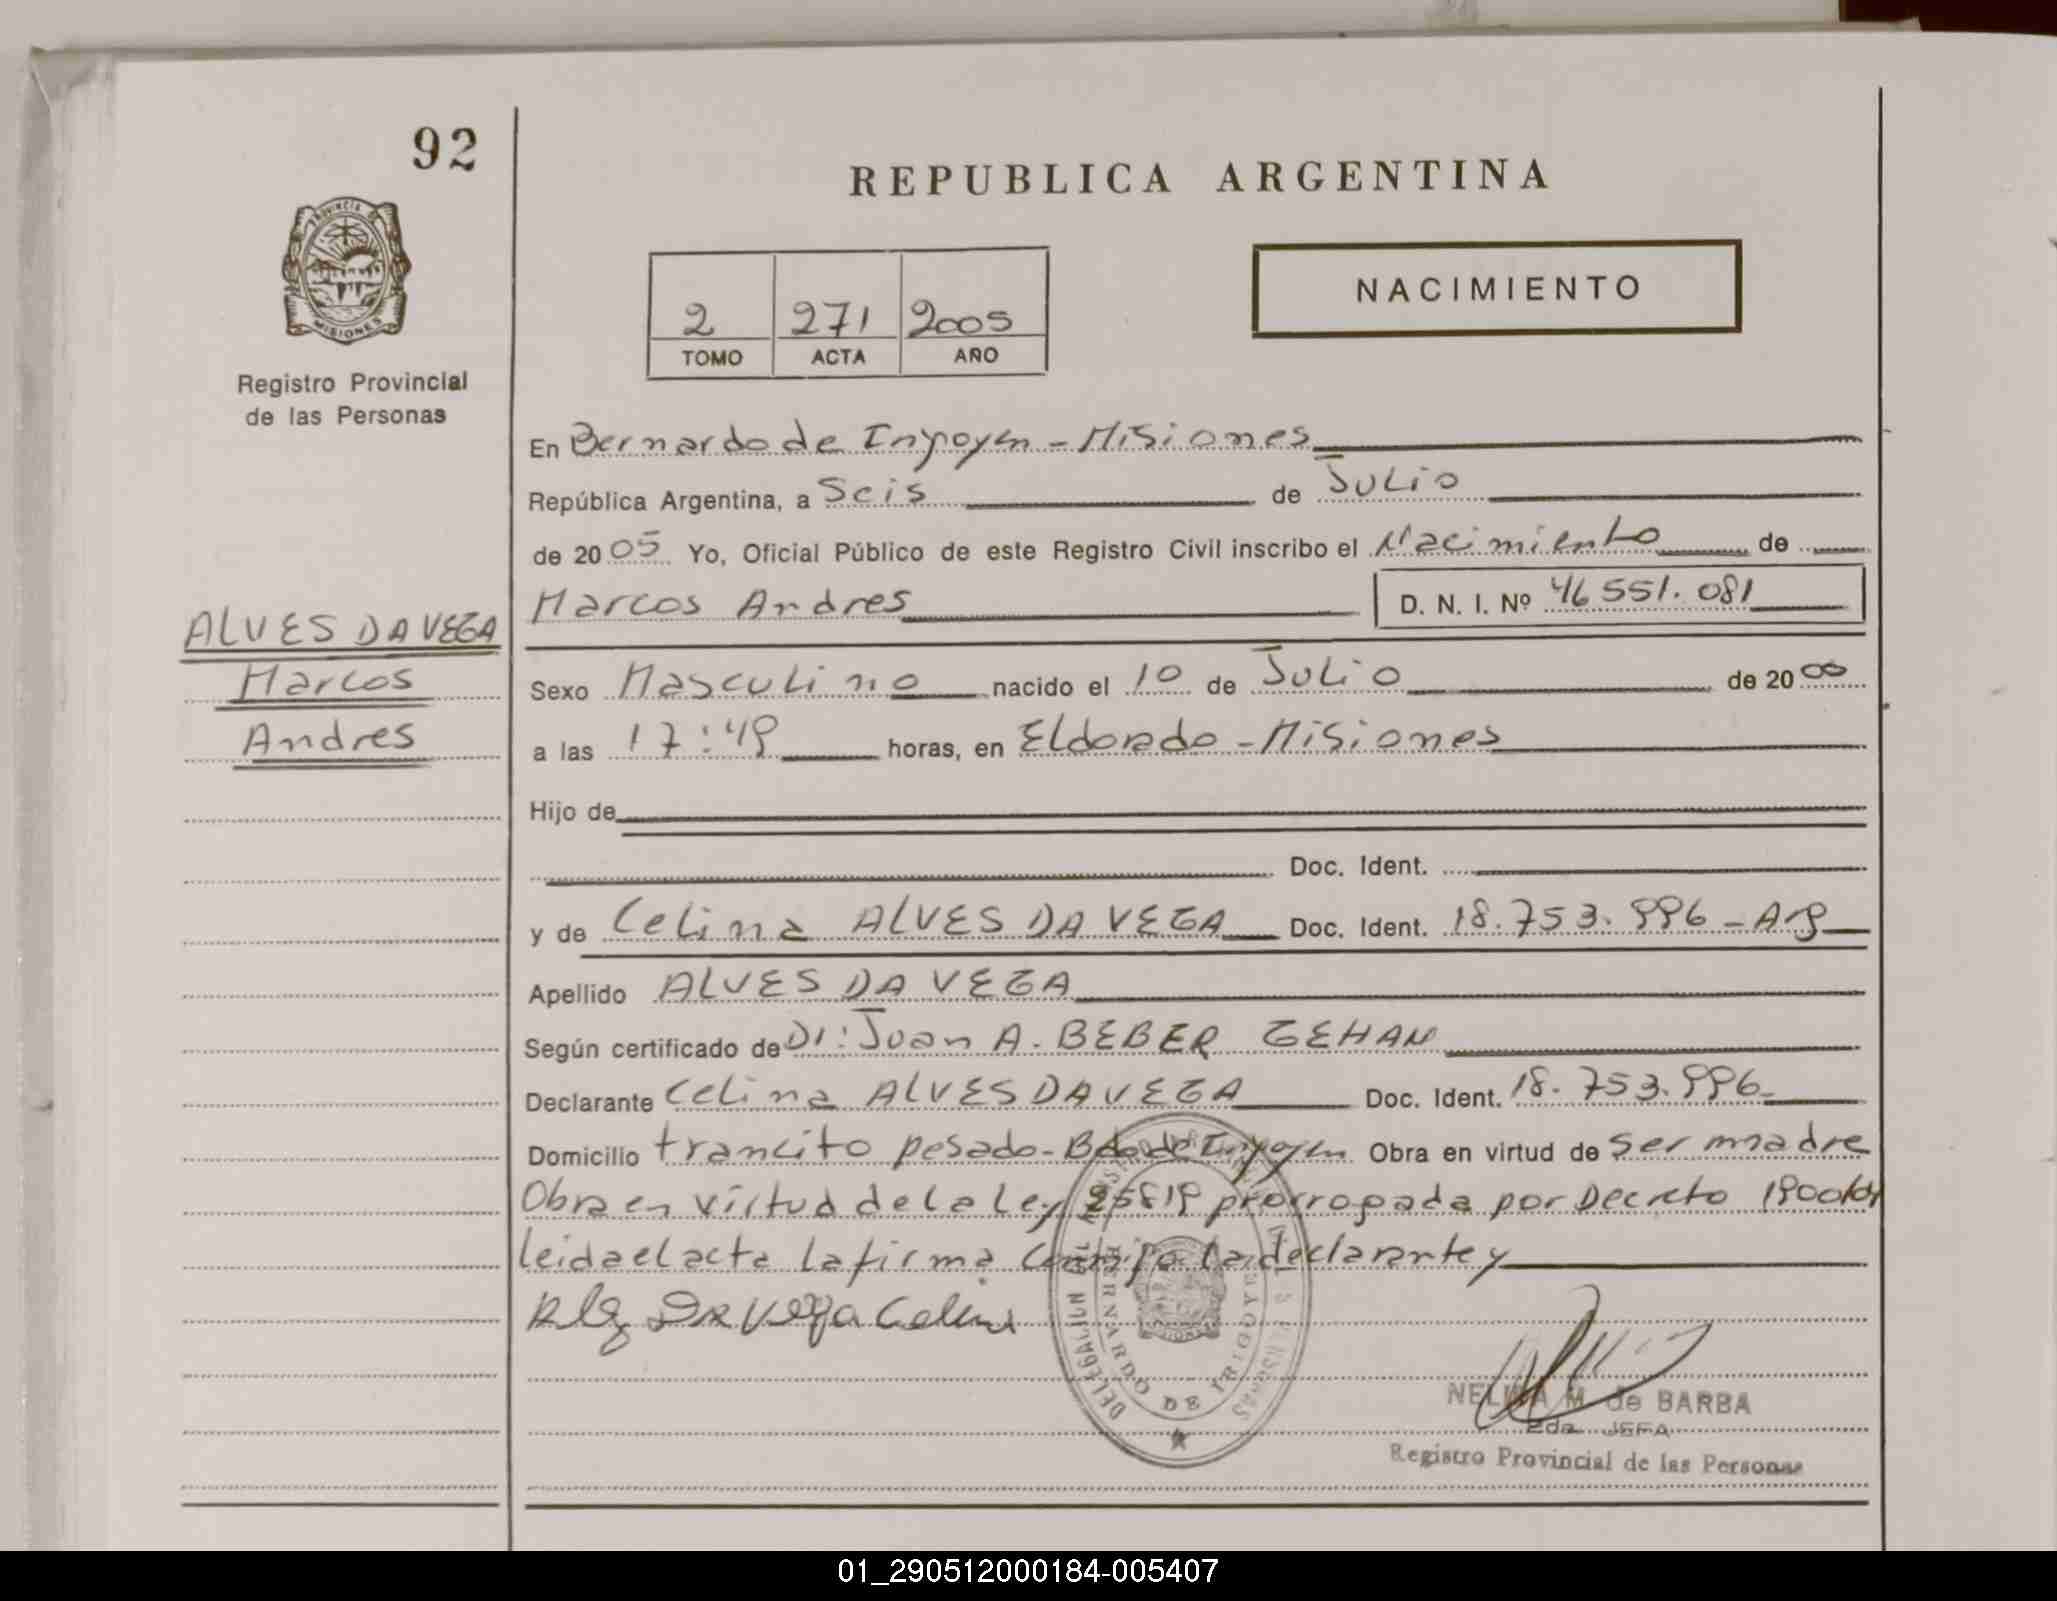 92
REPUBLICA ARGENTINA
PROVINCIA DE
MISIONES
Registro Provincial
de las Personas
NACIMIENTO
2 271 2005
TOMO ACTA AÑO
En Bernardo de Irigoyen - Misiones
República Argentina, a Seis de Julio
de 2005 Yo, Oficial Público de este Registro Civil inscribo el Nacimiento de
Marcos Andres D. N. I. Nº 46551.081
ALVES DA VEGA
Marcos
Andres
Sexo Masculino nacido el 10 de Julio de 2000
a las 17:49 horas, en Eldorado - Misiones
Hijo de
Doc. Ident.
y de Celina ALVES DA VEGA Doc. Ident. 18.753.996 - Arg
Apellido ALVES DA VEGA
Según certificado de Dr: Juan A. BEBER GEHAN
Declarante Celina ALVES DA VEGA Doc. Ident. 18.753.996
Domicilio trancito pesado - Bdo de Irigoyen Obra en virtud de ser madre
Obra en virtud de la Ley 25819 prorrogada por Decreto 1900/04
leida el acta la firma conmigo la declarante y
Da Vega Celina
BERNARDO DE IRIGOYEN
NELIDA M. de BARBA
2da JEFA
Registro Provincial de las Personas
01_290512000184-005407